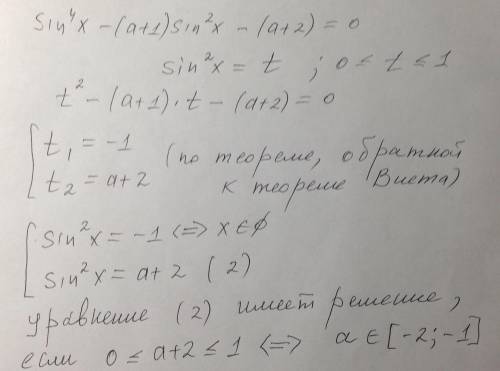 sin⁴x − (a+1)sin²x − (a+2) = 0
sin²x = t ; 0 ≤ t ≤ 1
t² − (a+1)·t − (a+2) = 0
[ t₁ = −1 (по теореме, обратной
t₂ = a+2 к теореме Виета)
[ sin²x = −1 <=> x ∈ ∅
sin²x = a+2 (2)
уравнение (2) имеет решение,
если 0 ≤ a+2 ≤ 1 <=> a ∈ [−2; −1]